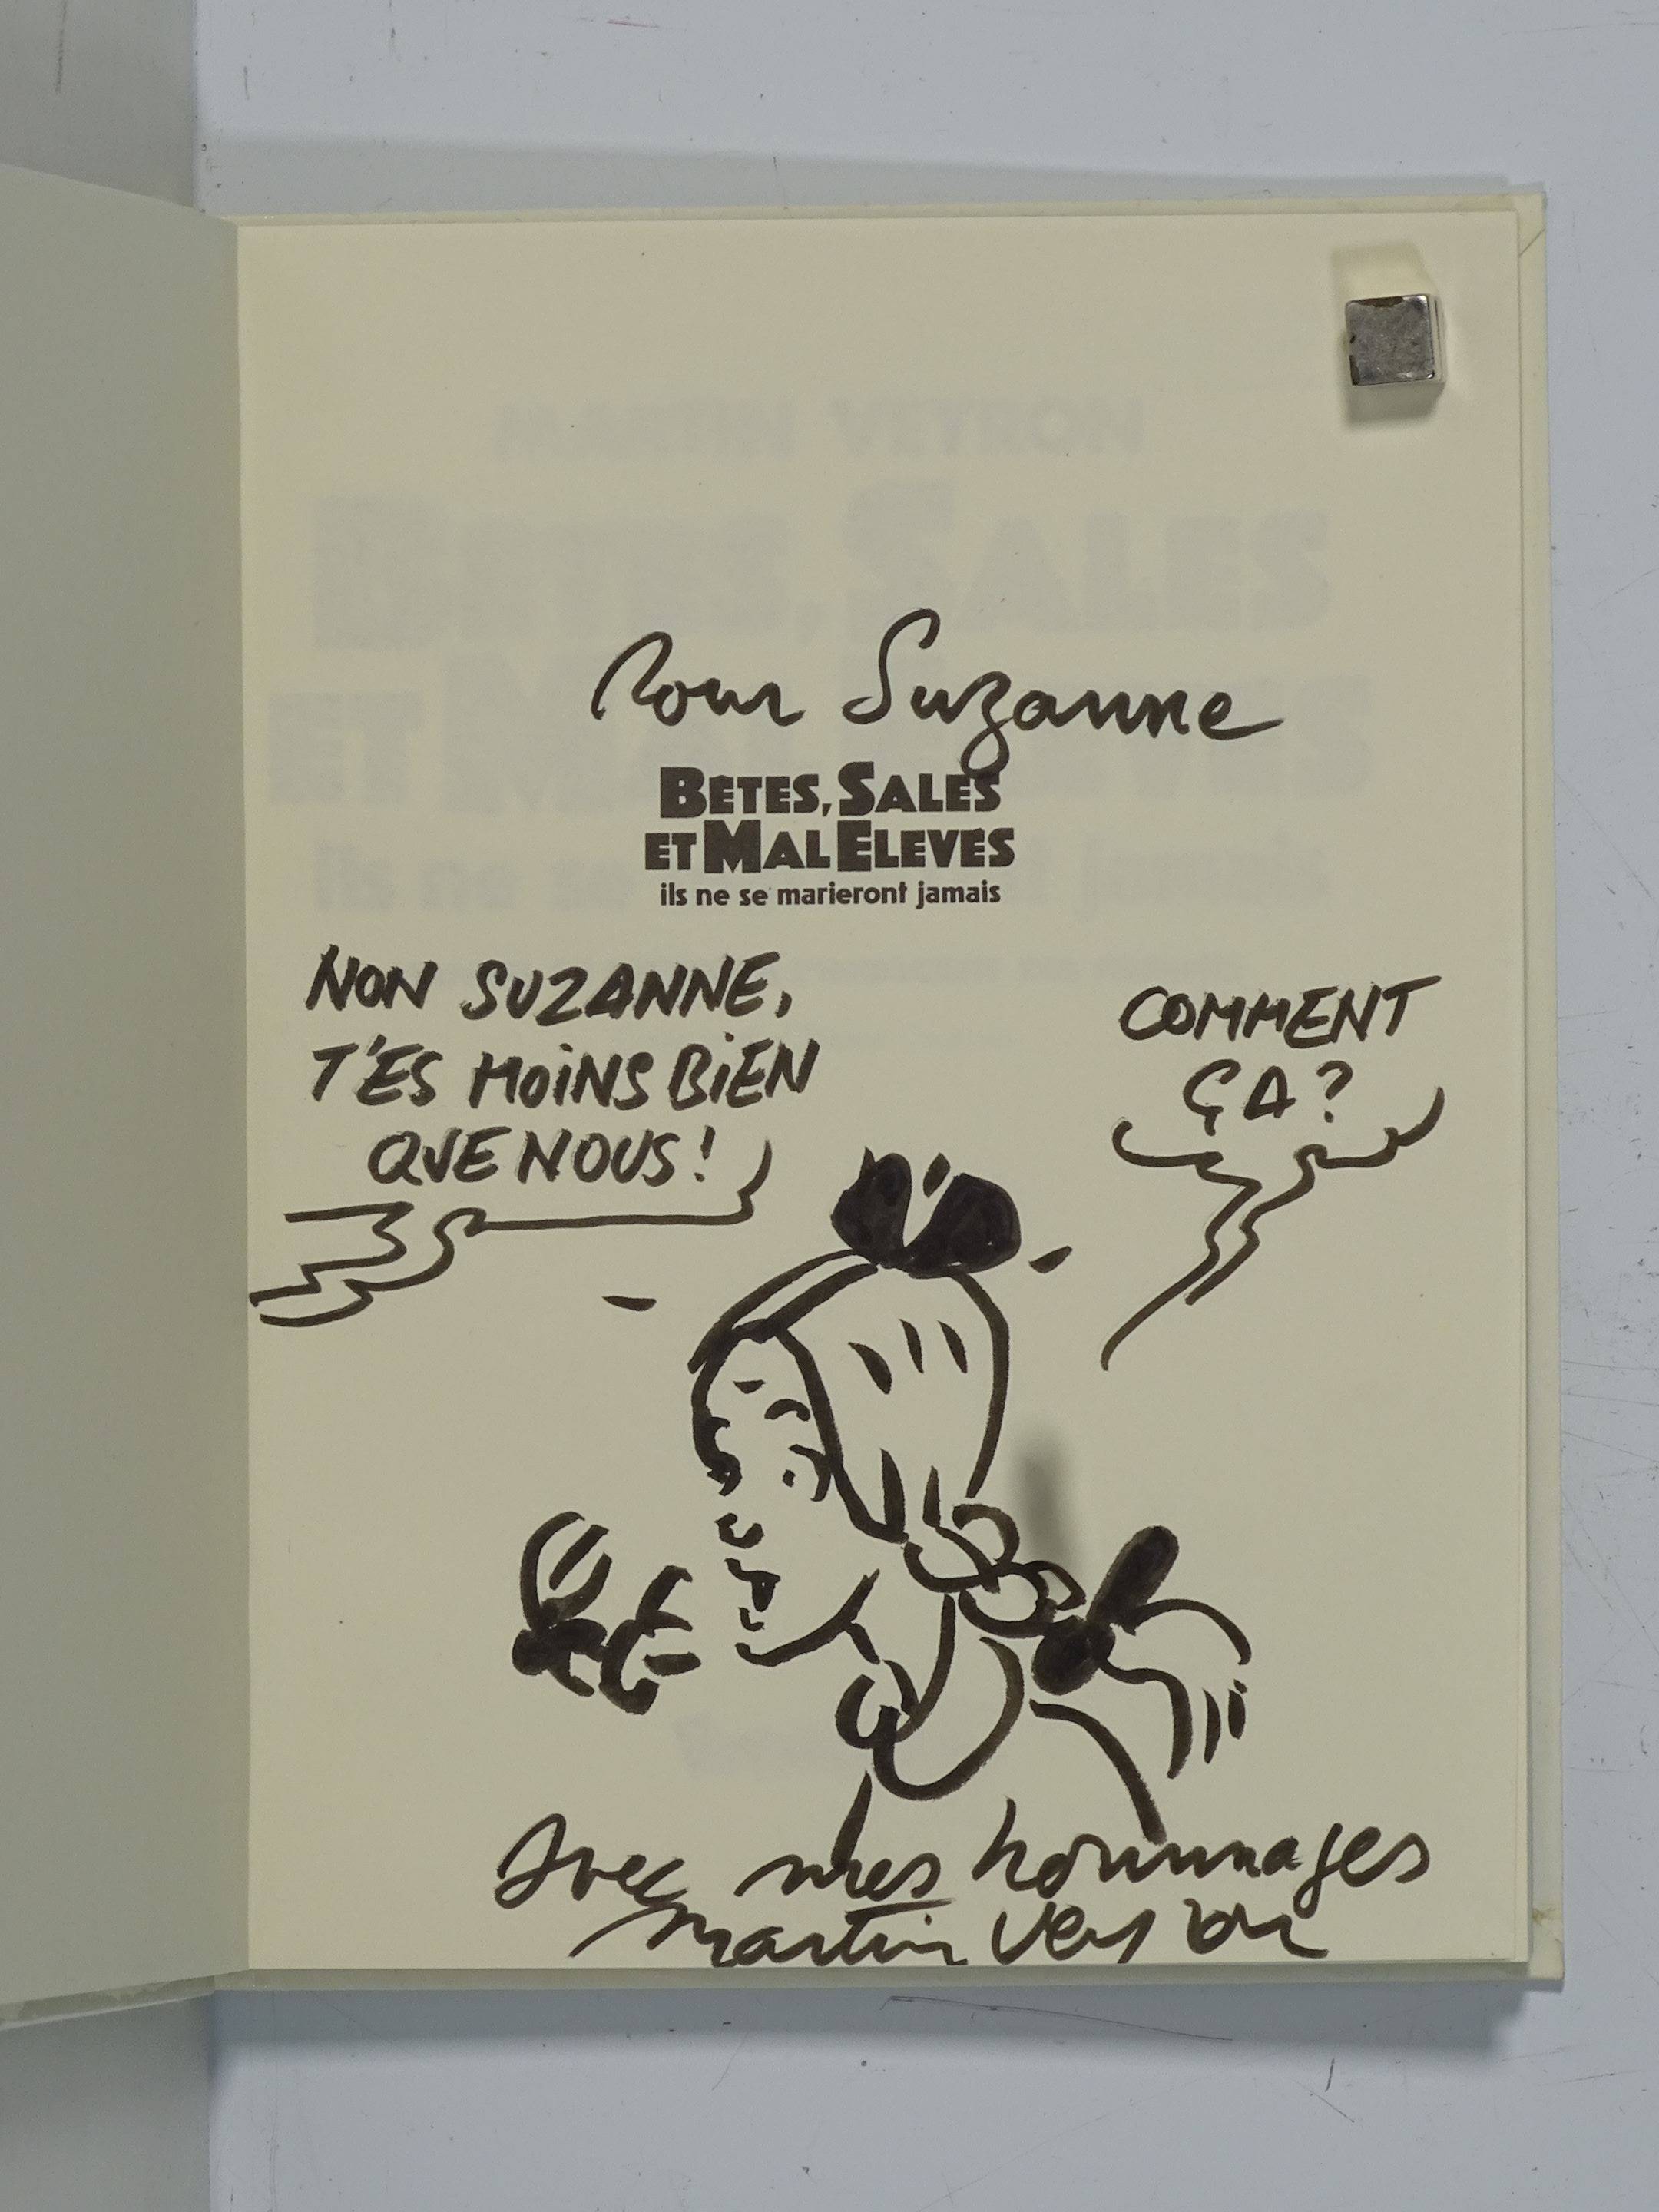 Pour Suzanne
BETES, SALES
ET MAL ELEVES
ils ne se marieront jamais
NON SUZANNE,
T'ES MOINS BIEN
QUE NOUS!
COMMENT
ÇA?
Avec mes hommages
martin veyron